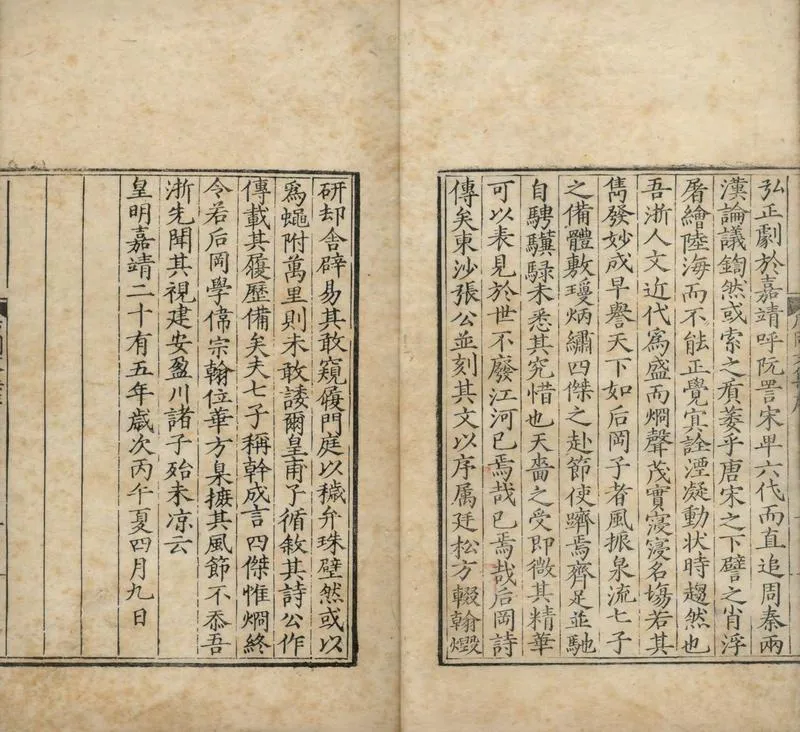 弘正劇於嘉靖呼阮詈宋卑六代而直追周秦兩
漢論議鍧然或索之有菱乎唐宋之下譬之肖浮
屠繪陸海而不能正覺㝠詮湮凝動状時趨然也
吾浙人文近代為盛而烱聲茂實寖寖名塲若其
雋發妙成早譽天下如后岡子者風振泉流七子
之備體敷瓊炳繡四傑之赴節使躋焉齊足並馳
自騁驥騄未悉其究惜也天嗇之受即微其精華
可以表見於世不廢江河已焉哉已焉哉后岡詩
傳矣東沙張公並刻其文以序属廷松方輟翰燬
研却舍辟易其敢窺履門庭以穢弁珠壁然或以
爲蠅附萬里則未敢諉爾皇甫子循敘其詩公作
傳載其履歷備矣夫七子稱幹成言四傑惟烱終
令若后岡學偉宗翰位華方臬攄其風節不忝吾
浙先聞其視建安盈川諸子殆未凉云
皇明嘉靖二十有五年歲次丙午夏四月九日